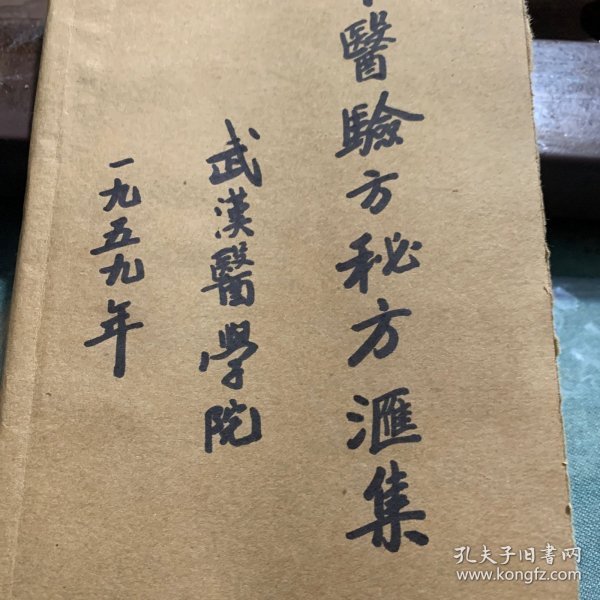 醫驗方秘方滙集
武漢醫學院
一九五九年
孔夫子旧书网
www.kongfz.com